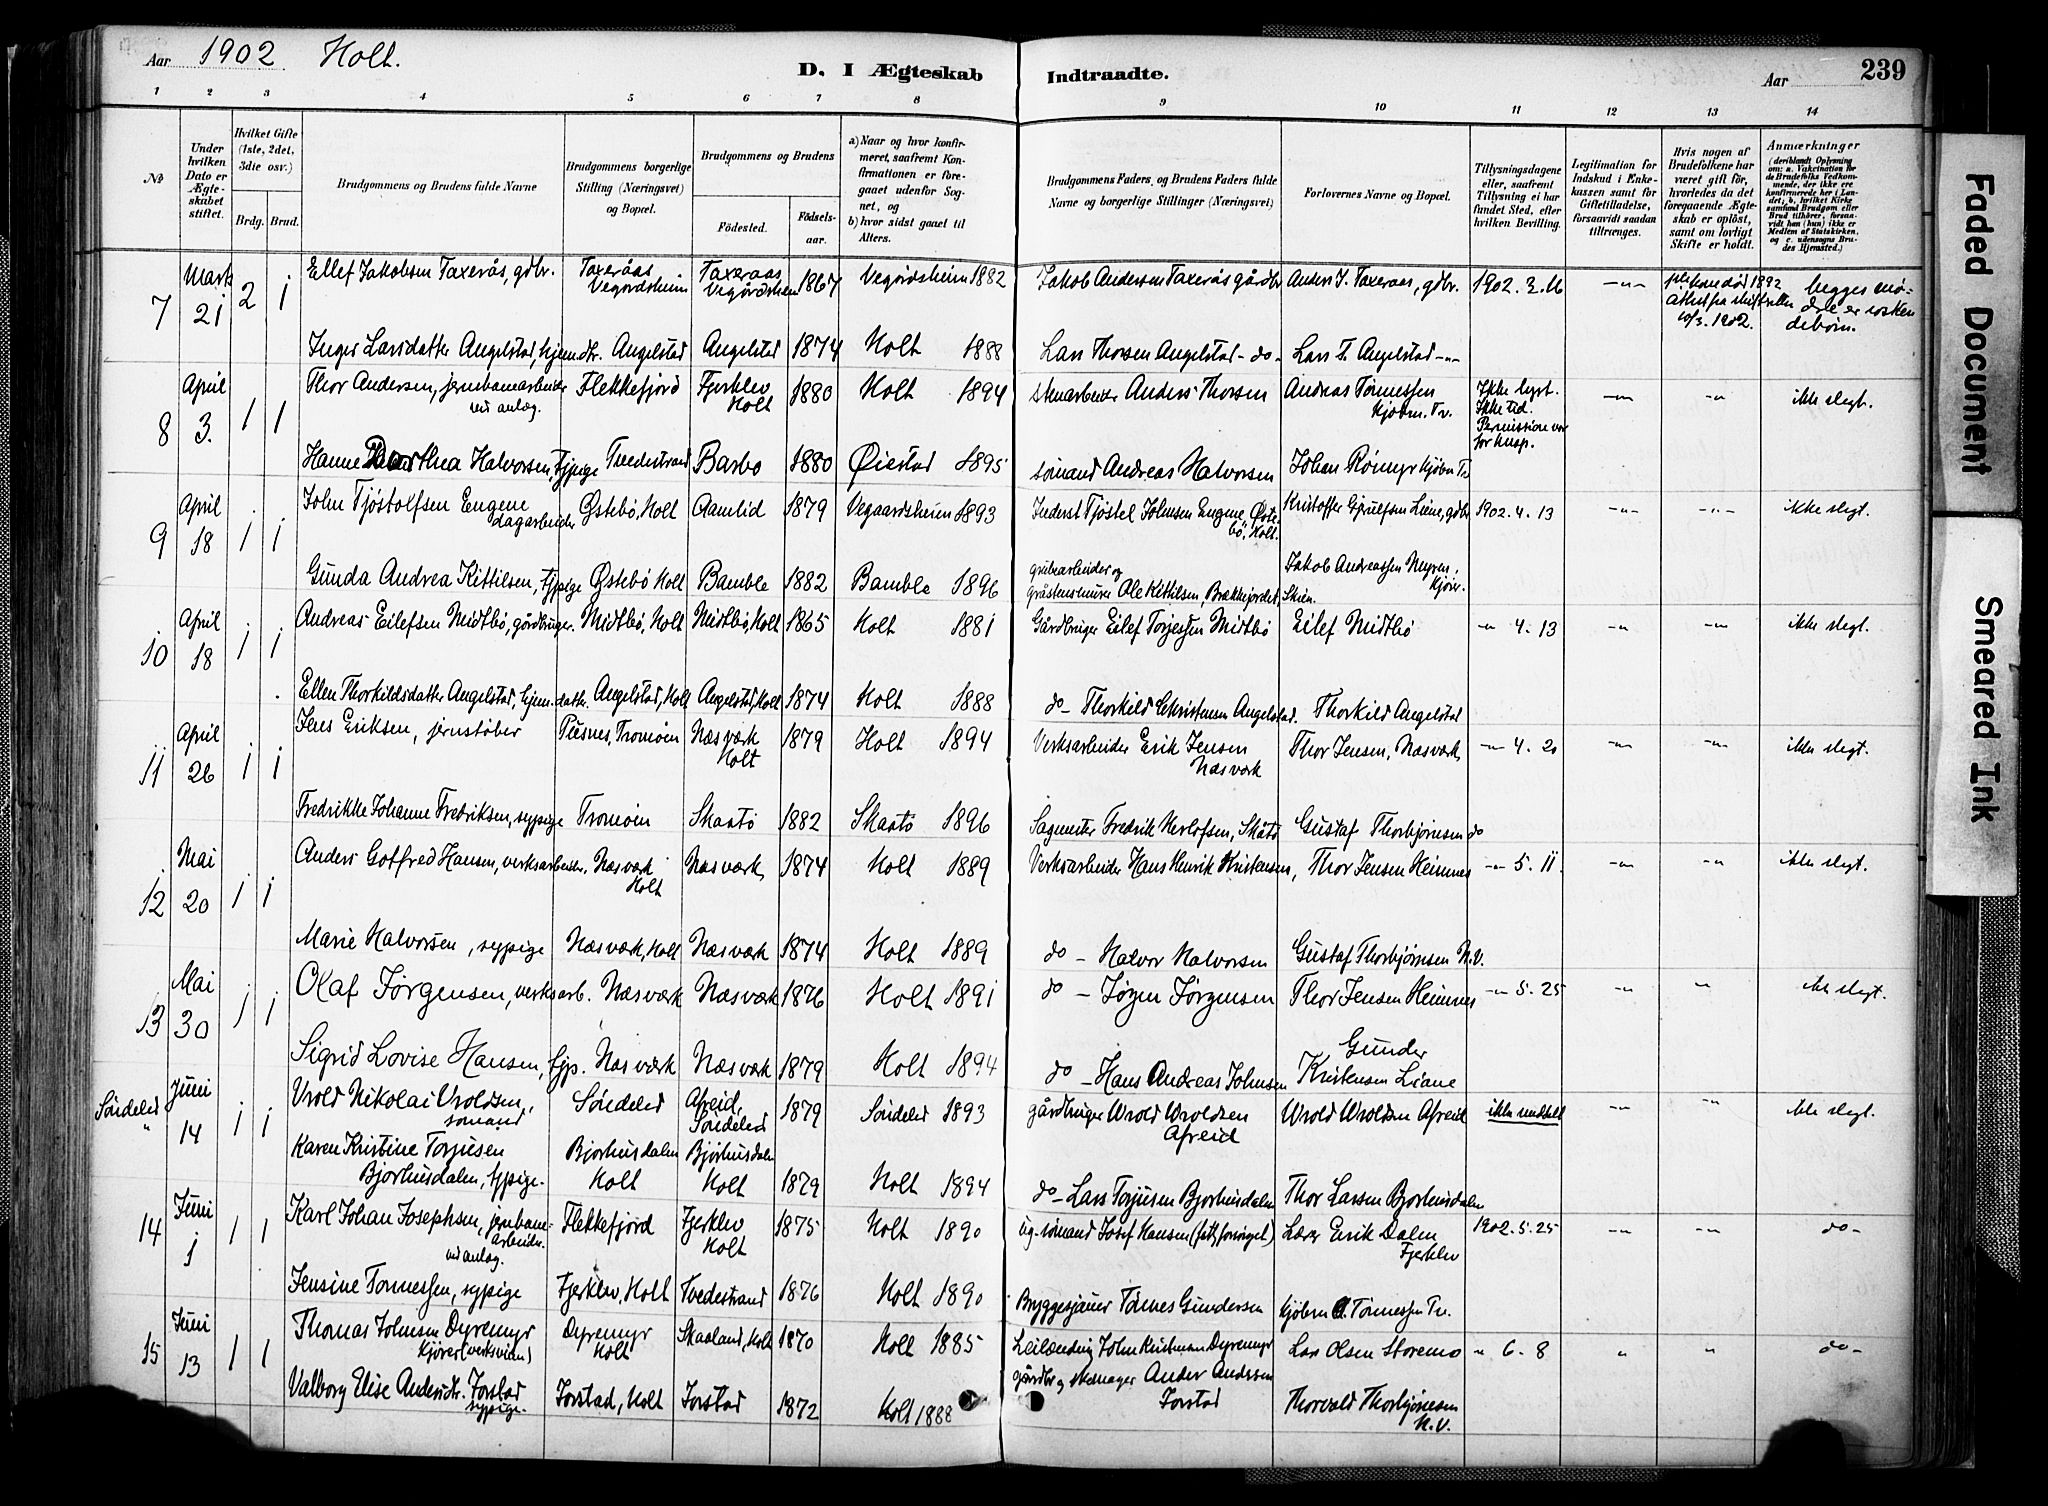 Aar 1902 Holt.
D. I Ægteskab Indtraadte.
Aar 239
1 2 3 4 5 6 7 8 9 10 11 12 13 14
№
Under hvilken Dato er Ægteskabet stiftet.
Hvilket Gifte (1ste, 2det, 3die osv.)
Brdg. Brud.
Brudgommens og Brudens fulde Navne
Brudgommens borgerlige Stilling (Næringsvei) og Bopæl.
Brudgommens og Brudens
Fødested.
Fødselsaar.
a) Naar og hvor konfirmeret, saafremt Konfirmationen er foregaaet udenfor Sognet, og
b) hvor sidst gaaet til Alters.
Brudgommens Faders, og Brudens Faders fulde Navne og borgerlige Stillinger (Næringsvei)
Forlovernes Navne og Bopæl.
Tillysningsdagene eller, saafremt Tillysning ei har fundet Sted, efter hvilken Bevilling.
Legitimation for Indskud i Enkekassen samt for Giftetilladelse, forsaavidt saadan tiltrænges.
Hvis nogen af Brudefolkene har været gift før, hvorledes da det foregaaende Ægteskab er opløst, samt om lovligt Skifte er holdt.
Anmærkninger
7 Marts 21 2 1 Ellef Jakobsen Taxerås, gdbr. Taxeråas Vegårdsheim Taxeraas Vegårdsheim 1867 Vegårdsheim 1882 Jakob Andersen Taxerås gårdbr Anders J. Taxeraas, gdbr. 1902. 3. 16 -"- 1892 10/3. 1902. begges
Inger Larsdatter Angelstad, hjem dtr. Angelstad Angelstad 1874 Holt 1888 Lars Thorsen Angelstad - do - Lars T. Angelstad -"-
8 April 3. 1 1 Thor Andersen, jernbanearbeider ved anlæg. Flekkefjord Fjerklev Holt 1880 Holt 1894 stenarbeider Anders Thorsen Andreas Tønnessen Kjøbm. Tv. Ikke lyst. Ikke tid. Permission var for knap. -"- -"- ikke slegt.
Hanne Dorthea Halvorsen, Sypige Tvedestrand Barbo 1880 Øiestad 1895 sømand Andreas Halvorsen Johan Rømyr Kjøbm Tv
9 April 18 1 1 John Tjøstolfsen Engene dagarbeider Østebö, Holt Aamlid 1879 Vegaardsheien 1893 Inderst Tjøstel Johnsen Engene Østebö, Holt. Kristoffer Gjeruldsen Liene, gdbr 1902. 4. 13 -"- -"- ikke slegt.
Gunda Andrea Kittilsen, Sypige Østebö Holt Bamble 1882 Bamble 1896 grubearbeider og gråstensmurer Ole Kittilsen, Brækkejordet, Skien. Jakob Andreassen Myren, Kjører.
10 April 18 1 1 Andreas Eilefsen Midtbø, gårdbruger. Midtbø, Holt Midtbø, Holt 1865 Holt 1881 Gårdbruger Eilef Torjessen Midtbø Eilef Midtbø -"- 4. 13 -"- -"- ikke slegt.
Ellen Thorkildsdatter Angelstad, hjem-datter. Angelstad, Holt Angelstad, Holt 1874 Holt 1888 do - Thorkild Christensen Angelstad. Thorkild Angelstad
11 April 26 1 1 Jens Eriksen, jernstøber Pusnes, Tromøen Næsværk Holt 1879 Holt 1894 Verksarbeider Erik Jensen Næsværk Thor Jensen, Næsværk, -"- 4. 20 -"- -"- ikke slegt.
Fredrikke Johanne Fredriksen, sypige Tromøen Skaatø 1882 Skaatø 1896 Sagmester Fredrik Herlofsen, Skåtø Gustaf Thorbjørnsen do
12 Mai 20 1 1 Anders Gotfred Hansen, verksarbeider. Næsværk Holt Næsværk, 1874 Holt 1889 Verksarbeider Hans Henrik Kristensen, Thor Jensen Heimnes -"- 5. 11. -"- -"- ikke slegt.
Marie Halvorsen, sypige Næsværk, Holt Næsværk 1874 Holt 1889 do - Halvor Halvorsen Gustaf Thorbjørnsen N.V.
13 Mai 30 1 1 Olaf Jörgensen, verksarb. Næsværk Næsværk 1876 Holt 1891 do - Jörgen Jörgensen Thor Jensen Heimnes -"- 5. 25 -"- -"- ikke slegt.
Sigrid Lovise Hansen, syp. Næsværk Næsværk 1879 Holt 1894 do - Hans Andreas Johnsen Gunder Kristensen Liane
Söndeled " Juni 14 1 1 Vrold Nikolai Vroldsen, sømand Söndeled Afreid, Söndeled 1879 Söndeled 1893 gårdbruger Wrold Wroldsen Afreid Wrold Wroldsen Afreid ikke meddelt -"- -"- ikke slegt.
Karen Kristine Torjusen Bjorhusdalen, Sypige. Bjorhusdalen Holt Bjorhusdalen Holt 1879 Holt 1894 do - Lars Torjusen Bjorhusdalen Thor Larsen Bjorhusdalen
14 Juni 1 1 1 Karl Johan Josephsen, jernbanearbeider. ved anlæg. Flekkefjord Fjerklev Holt 1875 Holt 1890 ug. sømand Josef Hansen (fattigforsörget) Lærer Erik Dalen Fjerklev 1902. 5. 25 -"- -"- do -
Jensine Tönnessen, sypige Fjerklev, Holt Tvedestrand 1876 Holt 1890 Bryggesjauer Tönnes Gundersen Kjøbm A. Tönnessen Tv.
15 Juni 13 1 1 Thomas Johnsen Dyremyr Kjører (verksvien) Dyremyr Holt Skaaland, Holt 1870 Holt 1885 Leilænding John Kristensen Dyremyr Lars Olsen Storemo " 6. 8 " " do -
Valborg Elise Andersdtr. Jorstad sypige. Jorstad, Holt Jorstad 1872 Holt 1888 gårdbr og stedmager Anders Anderssen Jorstad Thorvald Thorbjørnsen N.V.
Faded Document
Smeared Ink